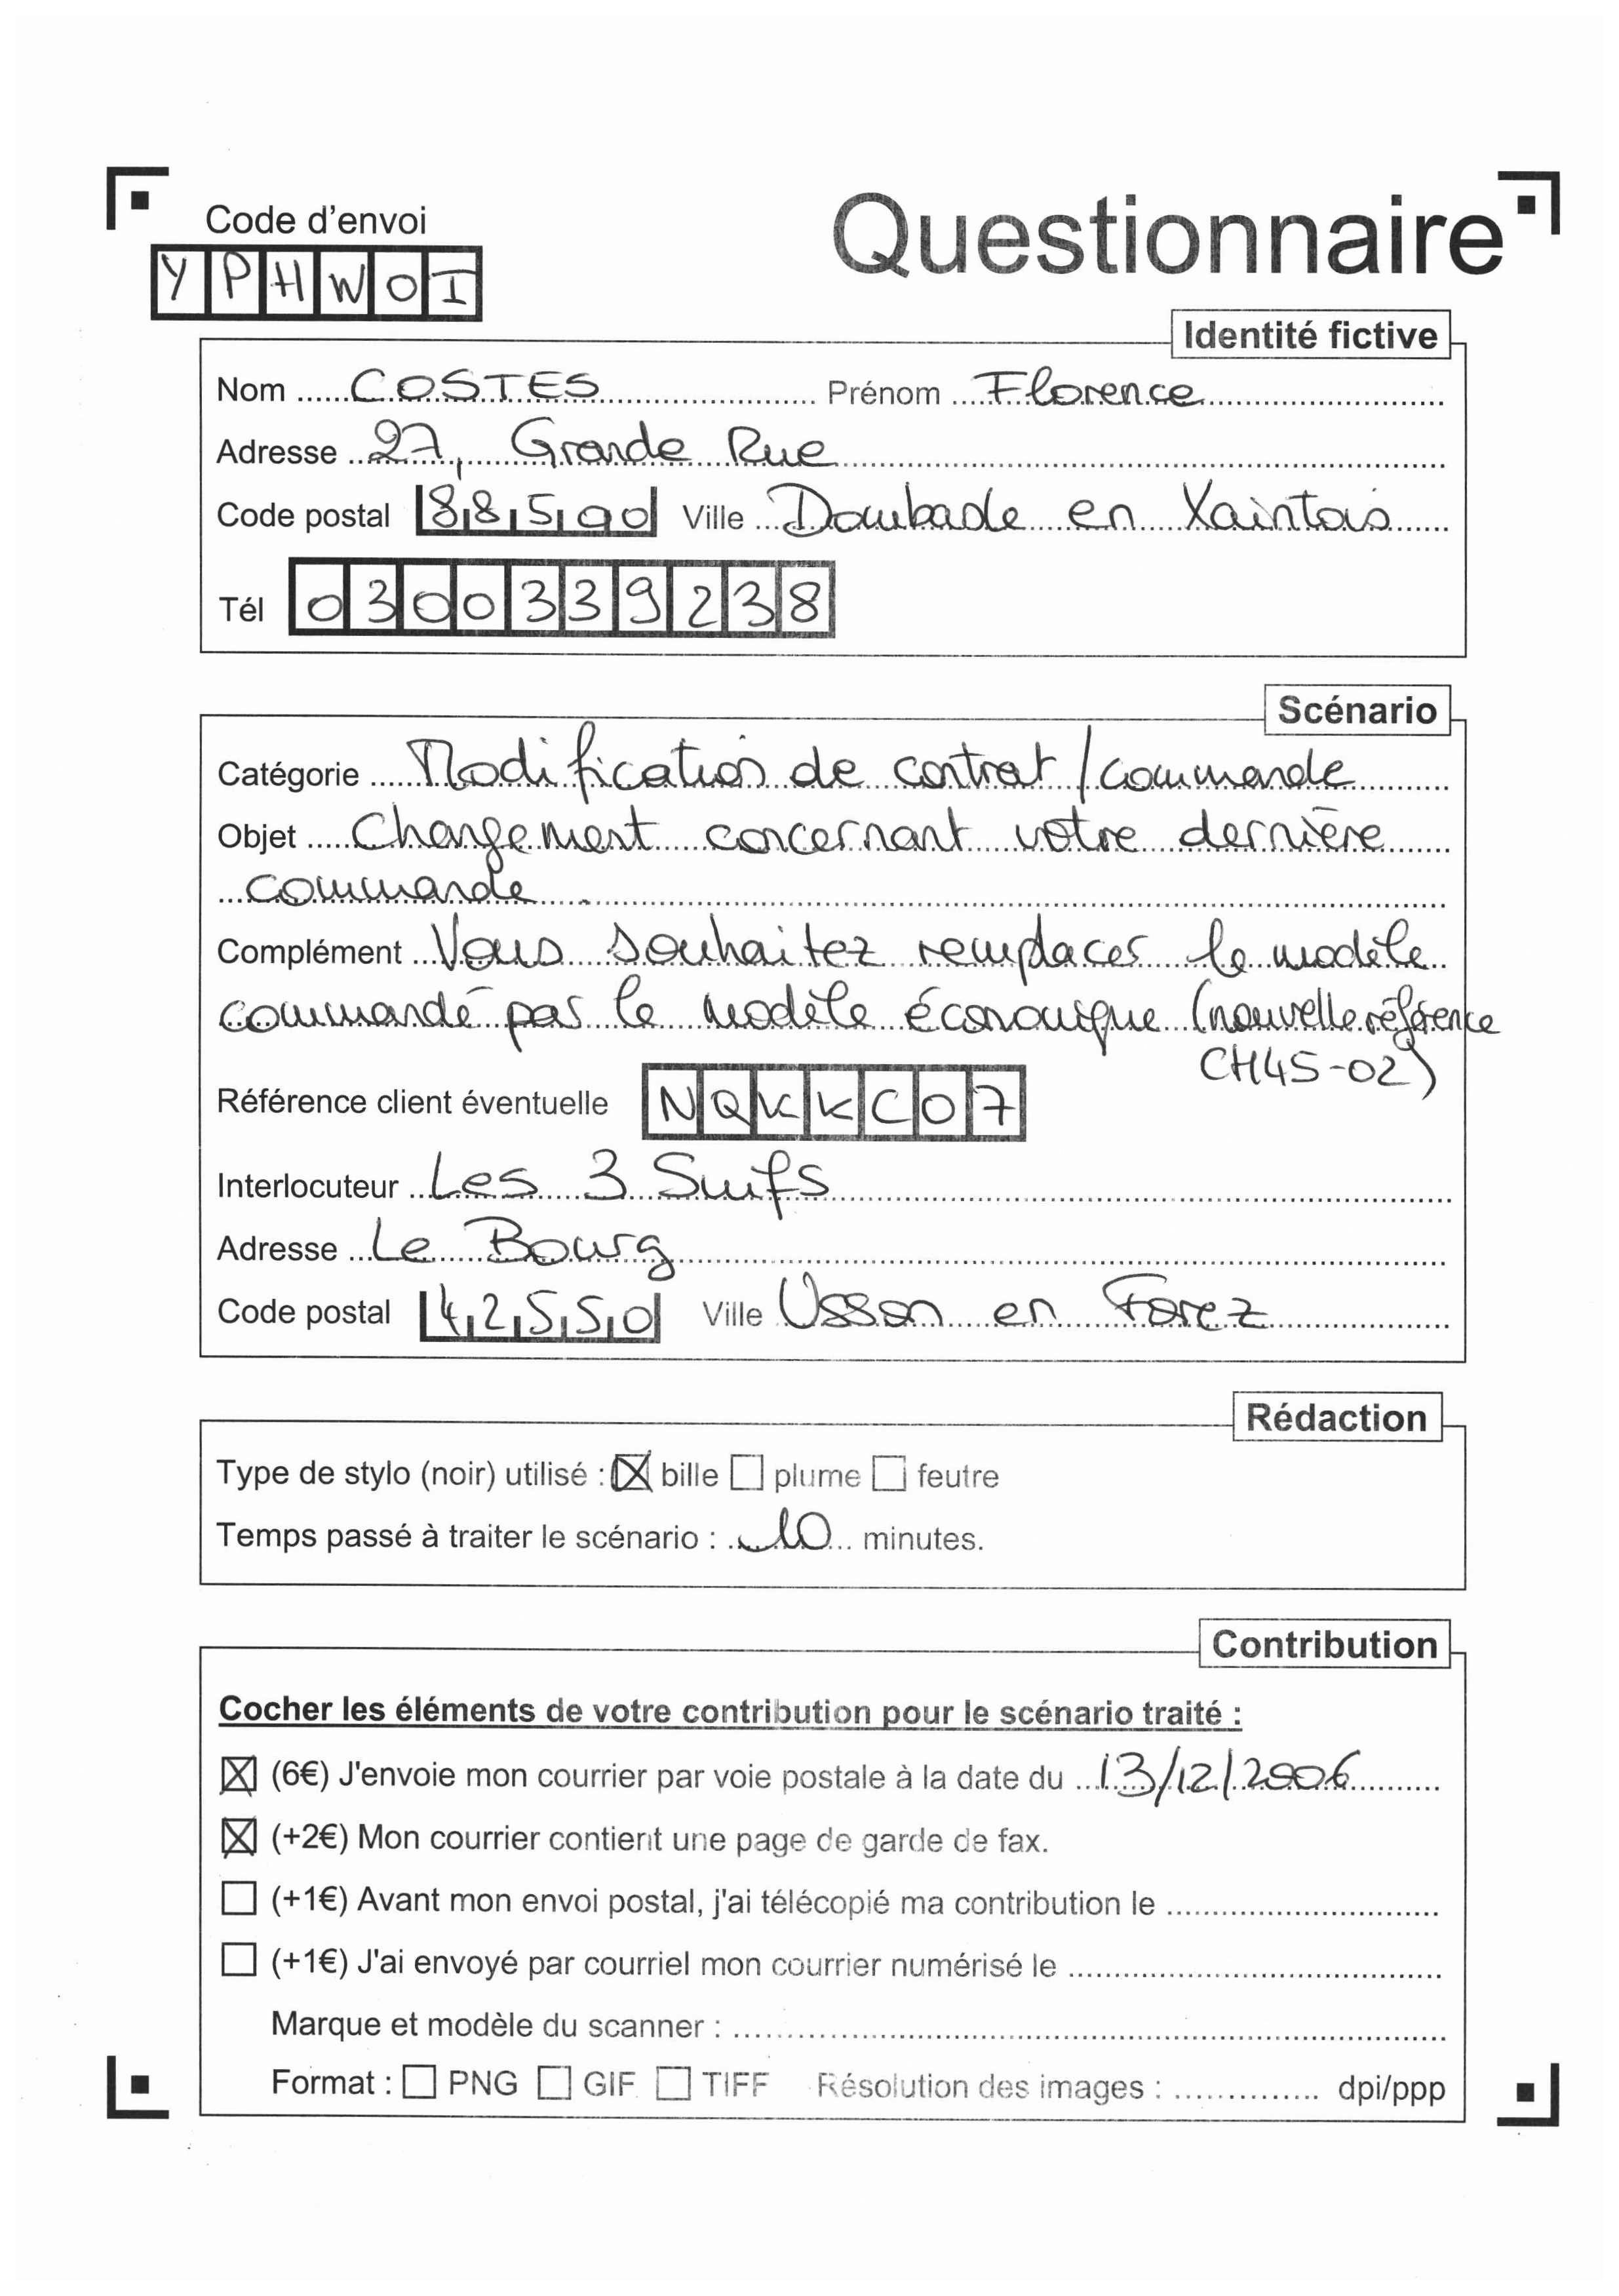 Code d'envoi
YPHWOI
Questionnaire
Identité fictive
Nom COSTES Prénom Florence
Adresse 27, Grande Rue
Code postal 88500 Ville en Xaintois
Tél 0300339238
Scénario
Catégorie Modification de contrat / commande
Objet Changement concernant votre dernière
commande
Complément Vous souhaitez remplacer le modèle
commandé par le modèle économique (nouvelle référence
CH45-02)
Référence client éventuelle NQKKC07
Interlocuteur Les 3 Suifs
Adresse Le Bourg
Code postal 42550 Ville Usson en Forez
Rédaction
Type de stylo (noir) utilisé : ☒ bille ☐ plume ☐ feutre
Temps passé à traiter le scénario : 10 minutes.
Contribution
Cocher les éléments de votre contribution pour le scénario traité :
☒ (6€) J'envoie mon courrier par voie postale à la date du 13/12/2006
☒ (+2€) Mon courrier contient une page de garde de fax.
☐ (+1€) Avant mon envoi postal, j'ai télécopié ma contribution le
☐ (+1€) J'ai envoyé par courriel mon courrier numérisé le
Marque et modèle du scanner :
Format : ☐ PNG ☐ GIF ☐ TIFF Résolution des images : dpi/ppp